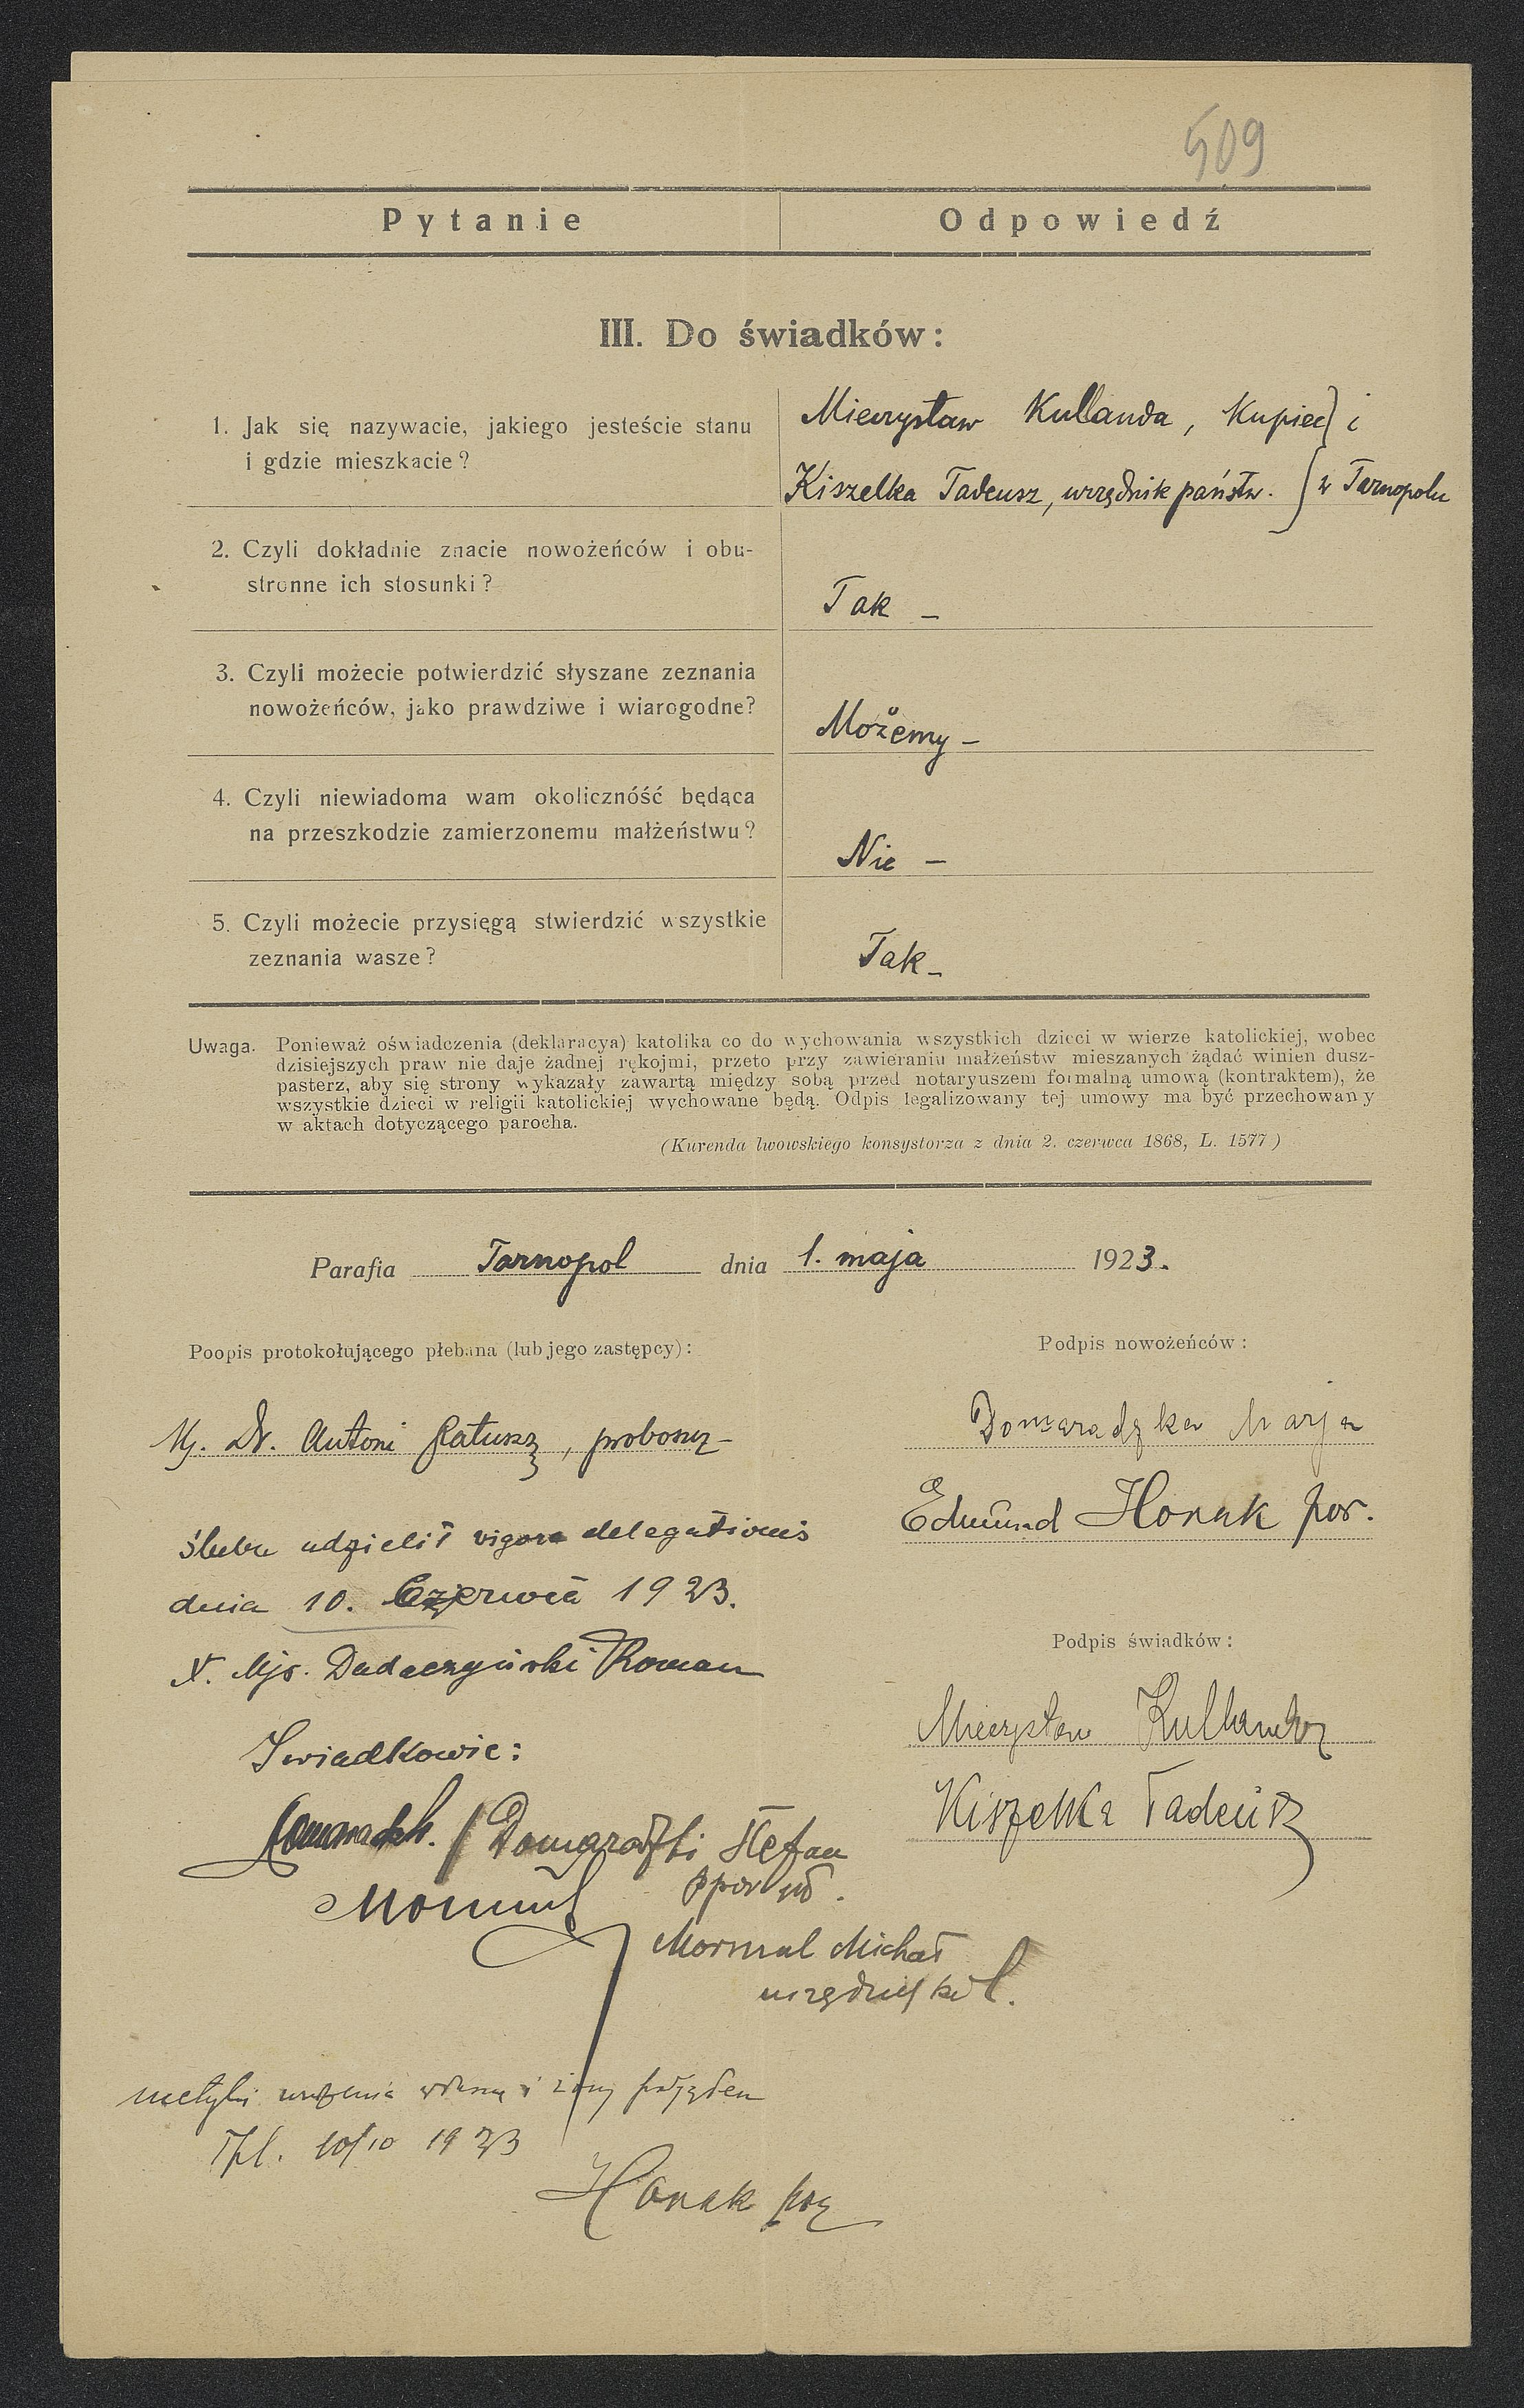 509
Pytanie Odpowiedź
III. Do świadków:
1. Jak się nazywacie, jakiego jesteście stanu
i gdzie mieszkacie?
Mieczysław Kullanda, Kupiec i
Kiszelka Tadeusz, urzędnik państw. w Tarnopolu
2. Czyli dokładnie znacie nowożeńców i obu-
stronne ich stosunki?
Tak –
3. Czyli możecie potwierdzić słyszane zeznania
nowożeńców, jako prawdziwe i wiarogodne?
Możemy –
4. Czyli niewiadoma wam okoliczność będąca
na przeszkodzie zamierzonemu małżeństwu?
Nie –
5. Czyli możecie przysięgą stwierdzić wszystkie
zeznania wasze?
Tak –
Uwaga. Ponieważ oświadczenia (deklaracya) katolika co do wychowania wszystkich dzieci w wierze katolickiej, wobec
dzisiejszych praw nie daje żadnej rękojmi, przeto przy zawieraniu małżeństw mieszanych żądać winien dusz-
pasterz, aby się strony wykazały zawartą między sobą przed notaryuszem formalną umową (kontraktem), że
wszystkie dzieci w religii katolickiej wychowane będą. Odpis legalizowany tej umowy ma być przechowany
w aktach dotyczącego parocha.
(Kurenda lwowskiego konsystorza z dnia 2. czerwca 1868, L. 1577)
Parafia Tarnopol dnia 1. maja 1923.
Poopis protokołującego plebana (lub jego zastępcy):
Podpis nowożeńców:
Dr. Antoni Ratusz, proboszcz
Domaradzka Marja
Edmund Horak por.
ślubu udzielił vigore delegationis
dnia 10. Czerwca 1923.
X. Mjr. Dadaczyński Roman
Podpis świadków:
Mieczysław Kullanda
Kiszelka Tadeusz
Swiadkowie:
Domaradzki Stefan
ppor
Mormul Michał
urzędnik kol.
metryki urodzenia własną i żony podjąłem
Tpl. 10/10 1923
Horak por